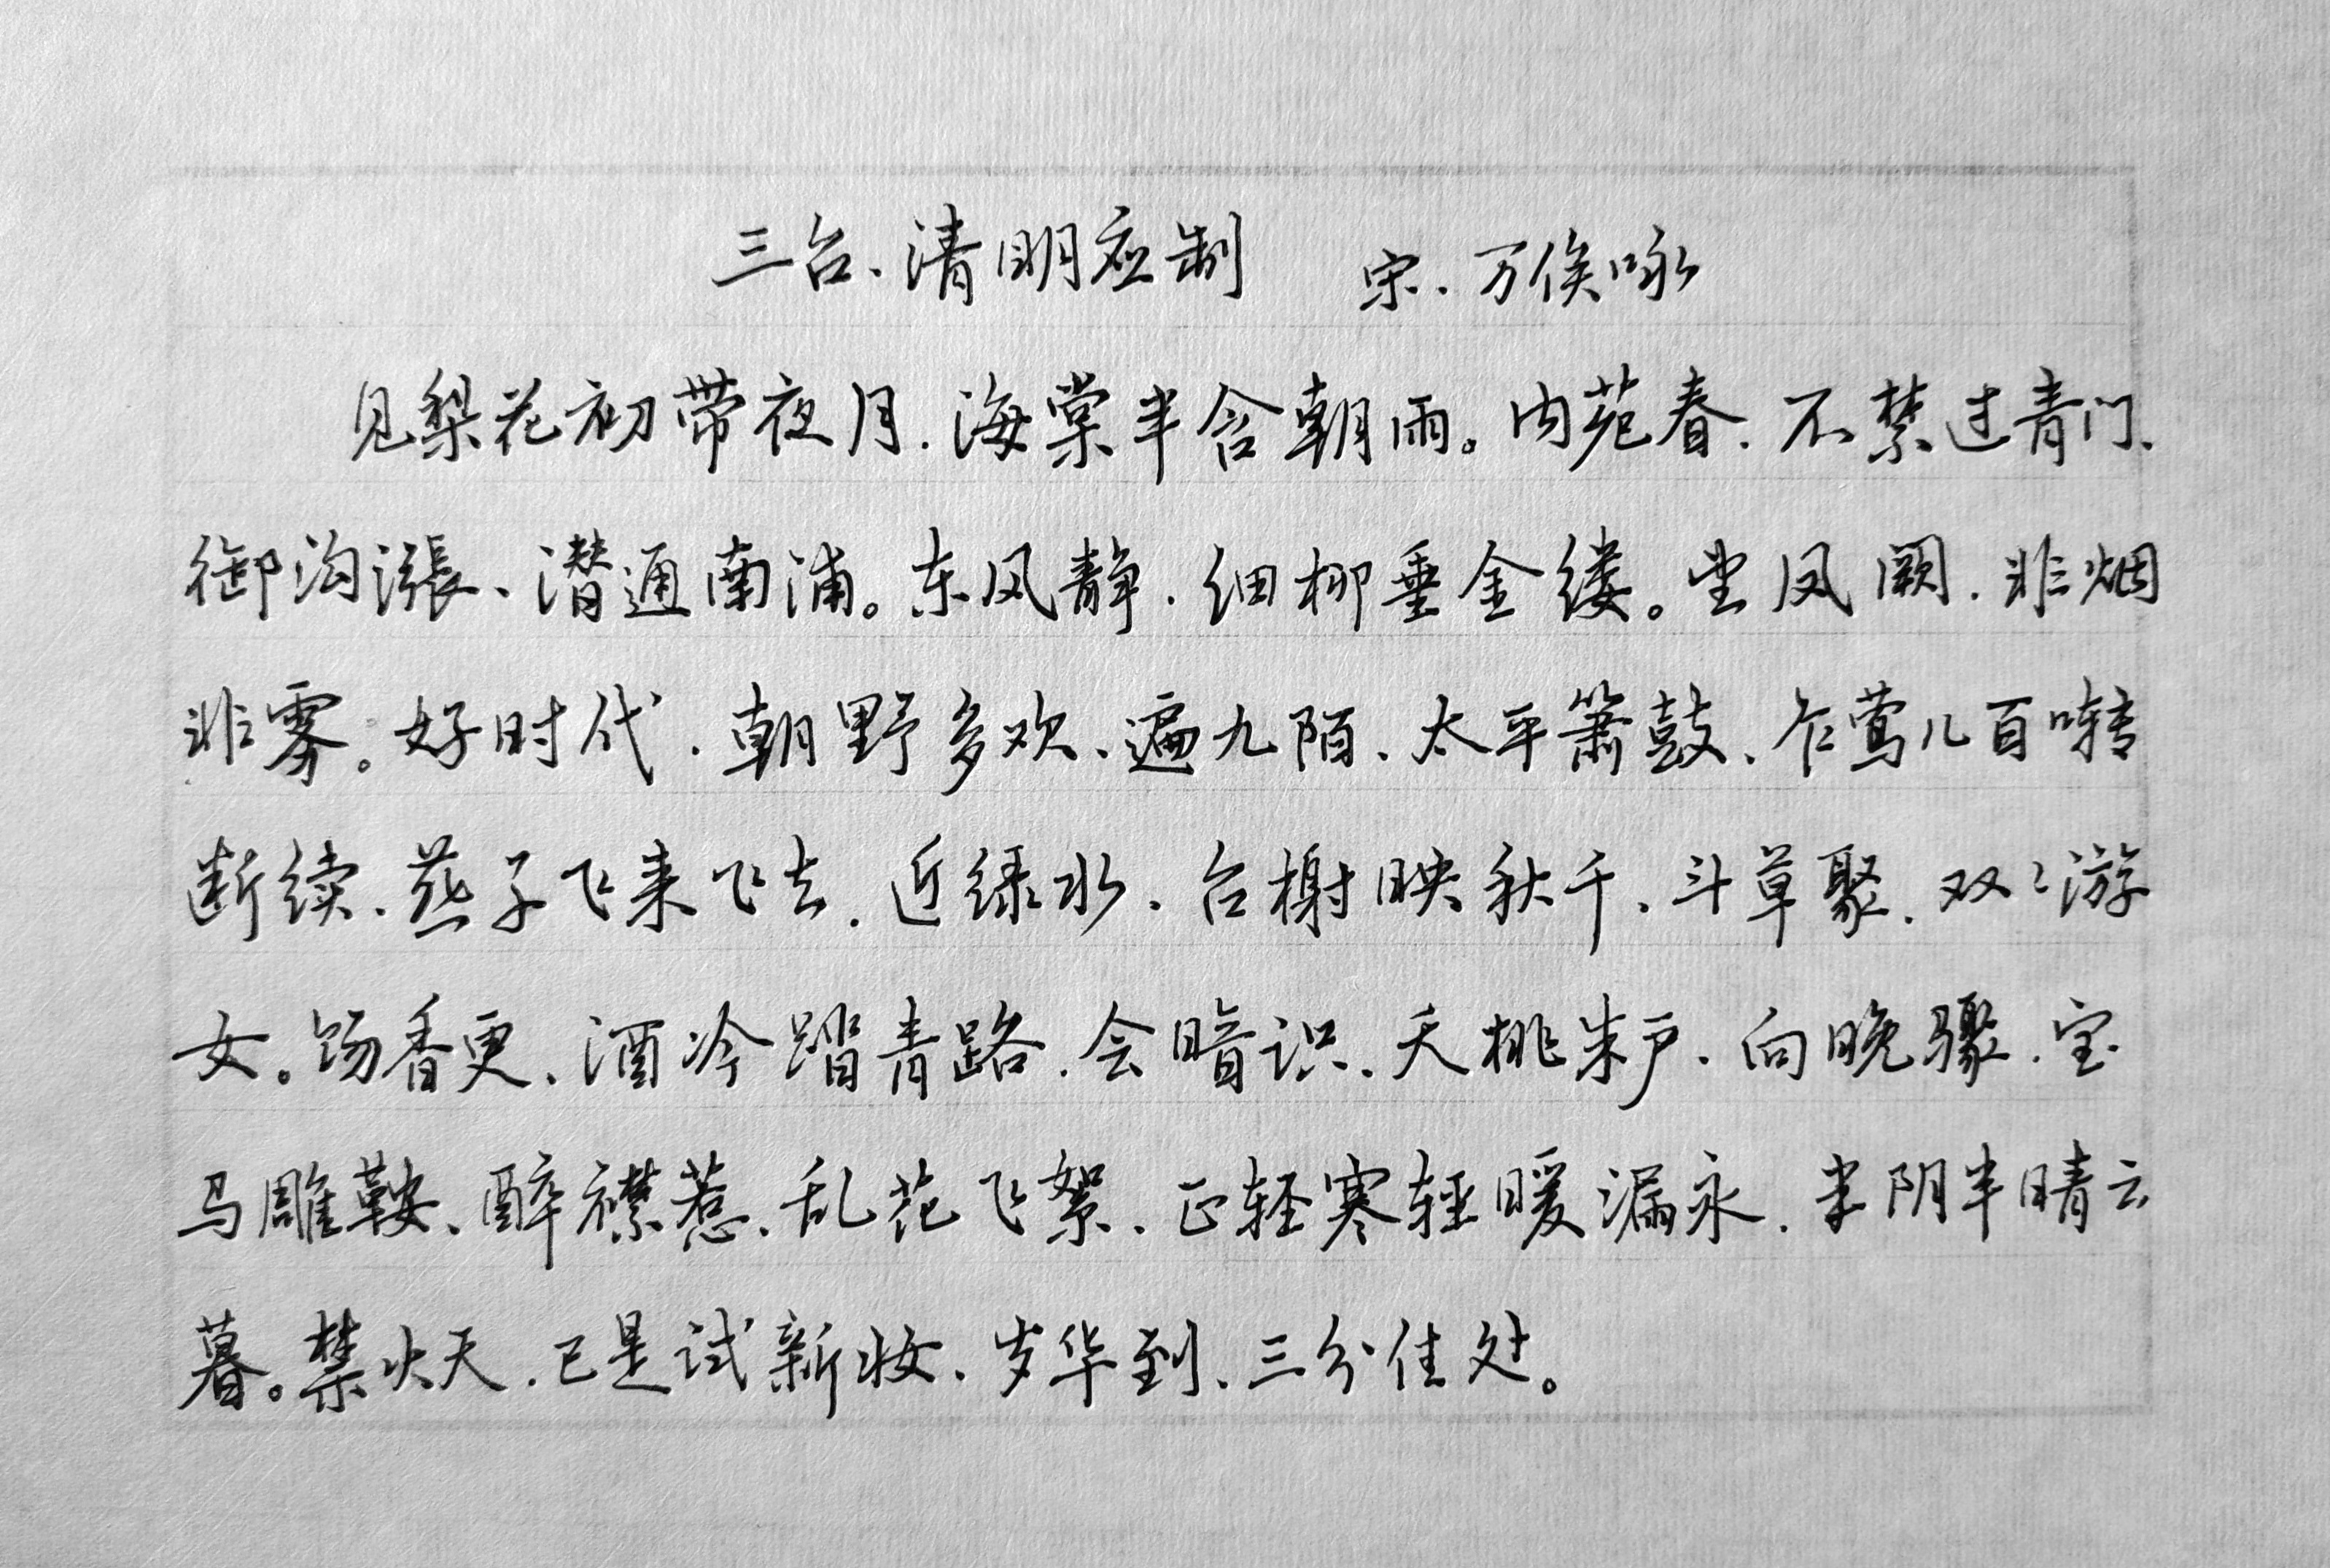 三台、清明应制 宋.万俟咏
见梨花初带夜月.海棠半含朝雨。内苑春.不禁过青门、
御沟漲、潜通南浦。东风静.细柳垂金缕。望凤阙.非烟
非雾。好时代.朝野多欢、遍九陌、太平箫鼓、乍莺儿百啭
断续、燕子飞来飞去.近绿水.台榭映秋千、斗草聚.双〻游
女。饧香更、酒冷踏青路.会暗识、夭桃朱户.向晚骤.宝
马雕鞍、醉襟惹、乱花飞絮.正轻寒轻暖漏永.半阴半晴云
暮。禁火天.已是试新妆、岁华到、三分佳处。